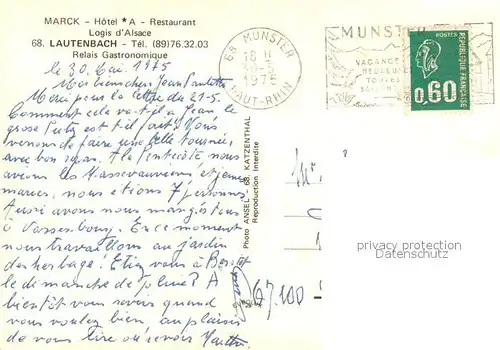 MARCK - Hôtel *A - Restaurant
Logis d'Alsace
68. LAUTENBACH - Tél. (89)76.32.03
Relais Gastronomique
le 30 Mai 1975
Ma bien cher Jean Paulette
Merci pour la lettre du 21-5.
Comment cela va-t-il à Jean le
grose est il fait! Vous
venons de faire une belle tournée,
avec bon repas. A la Pentecôte nous
avions les Massevauxiens et jeunes
mariés, nous étions 7 personnes
Aussi avons nous mangés tous
à Vasserbourg. En ce moment
nous travaillons au jardin
desherbage! Etiez vous à
le dimanche de pluie? A
bientôt vous savoir quand
vous voulez bien au plaisir
de vous lire au revoir Martha
68 MUNSTER
18 H
1975
HAUT-RHIN
MUNSTER
VACANCES
HEUREUSES
TOUTES
SAISONS
POSTES
0,60
REPUBLIQUE FRANÇAISE
Photo ANSEL - 68. KATZENTHAL
Reproduction Interdite
privacy protection
Datenschutz
67.100